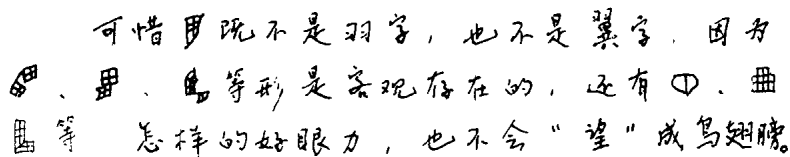 可惜既不是羽字，也不是翼字．因为
、、等形是客观存在的，还有、
等 怎样的好眼力，也不会“望”成鸟翅膀。